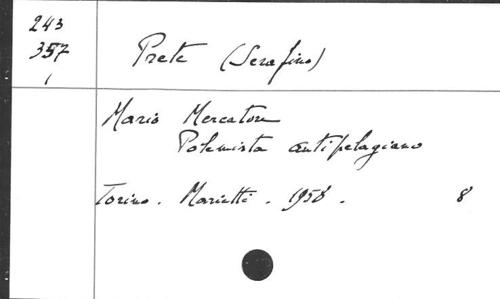 243
357
1
Prete (Serafino)
Mario Mercatore
Polemista antipelagiano
Torino. Marietti. 1958. 8